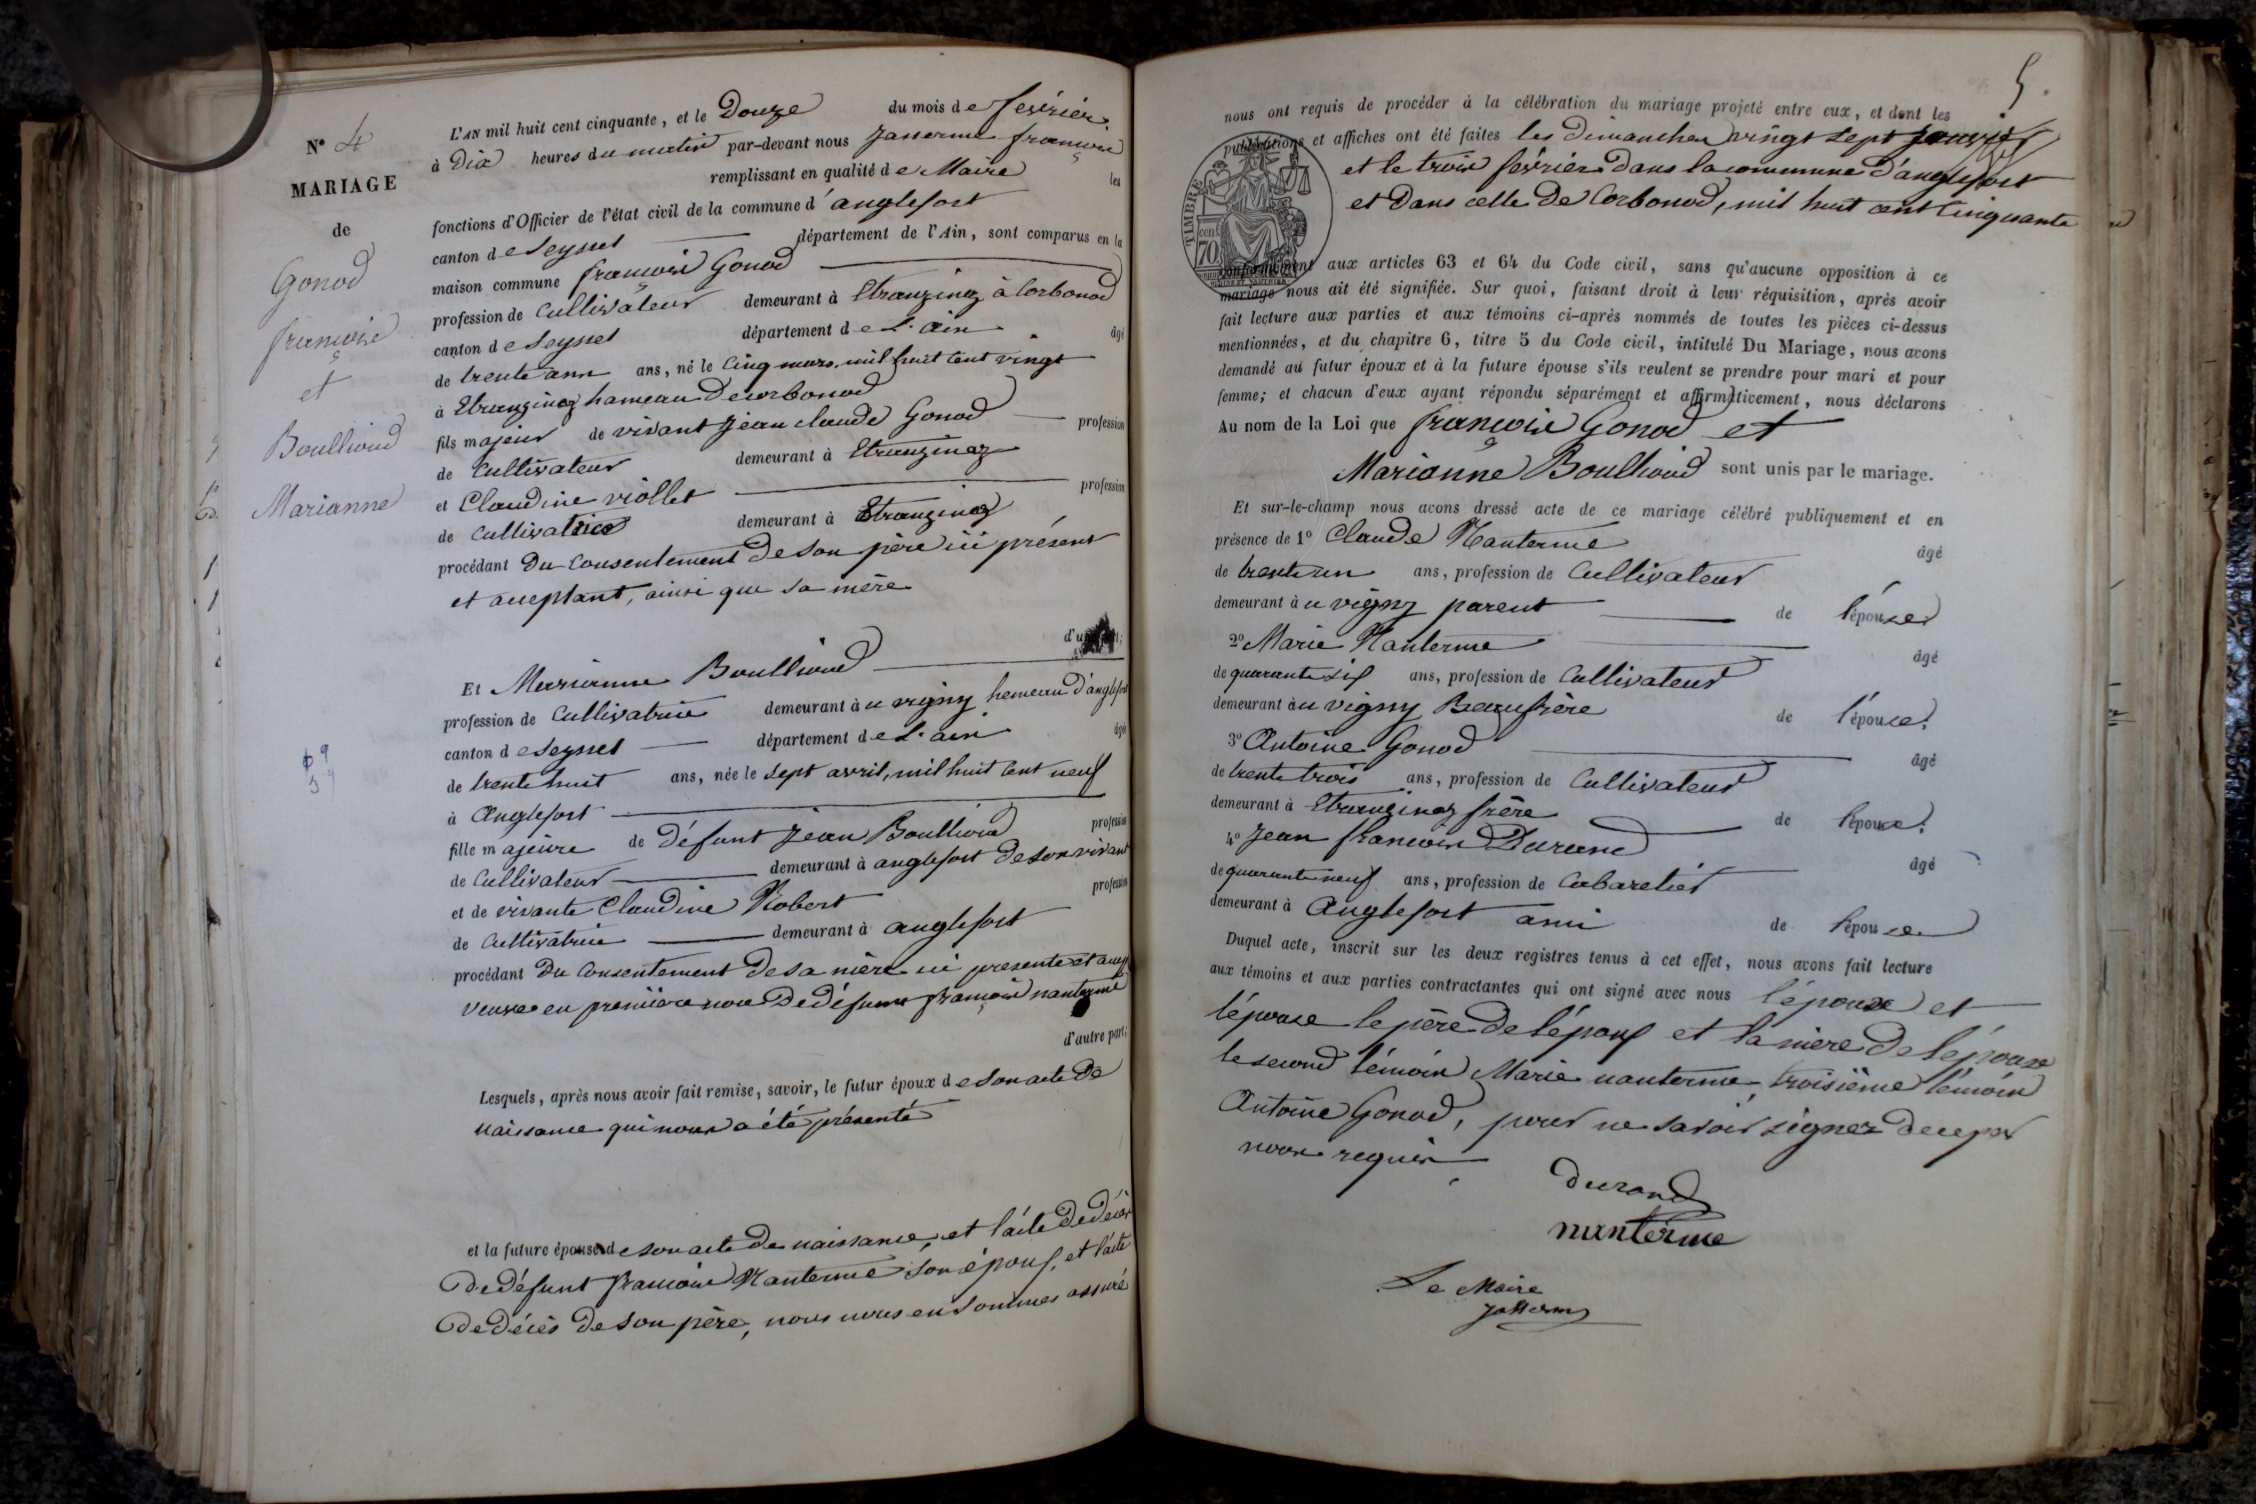 N° 4
MARIAGE
de
Gonod
françois
et
Boullioud
Marianne
L'AN mil huit cent cinquante, et le Douze du mois de février
à Dix heures du matin par-devant nous Jasserme françois
remplissant en qualité de Maire les
fonctions d'Officier de l'état civil de la commune d'anglefort
canton de Seyssel département de l'Ain, sont comparus en la
maison commune françois Gonod
profession de Cultivateur demeurant à Etranginaz à Corbonod
canton de Seyssel département de L'ain âgé
de trente ans ans, né le Cinq mars, mil huit cent vingt
à Etranginaz hameau De corbonod
fils majeur de vivant Jean claude Gonod profession
de Cultivateur demeurant à Etranginaz
et Claudine viollet profession
de Cultivatrice demeurant à Etranginaz
procédant Du Consentement De son père ici présent
et acceptant, ainsi que sa mère
d'une part;
Et Marianne Boullioud
profession de Cultivatrice demeurant à u vigny hemeau d'anglefort
canton de Seyssel département de L'ain âgé
de trente huit ans, née le Sept avril, mil huit cent neuf
à Anglefort
fille majeure de Défunt Jean Boullioud profession
de Cultivateur demeurant à anglefort De son vivant
et de vivante Claudine Robert profession
de Cultivatrice demeurant à anglefort
procédant Du Consentement De sa mère ici presente et accep
veuve en première noce De défunt françois nanterme
d'autre part;
Lesquels, après nous avoir fait remise, savoir, le futur époux de son acte De
naissance qui nous a été présenté
et la future épouse de son acte de naissance, et l'acte De décès
De défunt françois Nanterme son époux, et l'acte
De décès de son père, nous nous en sommes assuré
5.
nous ont requis de procéder à la célébration du mariage projeté entre eux, et dont les
publications et affiches ont été faites les dimanches vingt sept janvier
et le trois février dans la commune d'anglefort
et dans celle De Corbonod, mil huit cent Cinquante
TIMBRE
70 cent
conformément aux articles 63 et 64 du Code civil, sans qu'aucune opposition à ce
mariage nous ait été signifiée. Sur quoi, faisant droit à leur réquisition, après avoir
fait lecture aux parties et aux témoins ci-après nommés de toutes les pièces ci-dessus
mentionnées, et du chapitre 6, titre 5 du Code civil, intitulé Du Mariage, nous avons
demandé au futur époux et à la future épouse s'ils veulent se prendre pour mari et pour
femme; et chacun d'eux ayant répondu séparément et affirmativement, nous déclarons
Au nom de la Loi que françois Gonod et
Marianne Boullioud sont unis par le mariage.
Et sur-le-champ nous avons dressé acte de ce mariage célébré publiquement et en
présence de 1° Claude Nanterme âgé
de trente un ans, profession de Cultivateur
demeurant à u vigny parent de l'épouse
2° Marie Nanterme âgé
de quarante six ans, profession de Cultivateur
demeurant à u vigny Beaufrère de l'épouse.
3° Antoine Gonod âgé
de trente trois ans, profession de Cultivateur
demeurant à Etranginaz frère de l'époux.
4° Jean françois Durand âgé
de quarante neuf ans, profession de Cabaretier
demeurant à Anglefort ami de l'épouse
Duquel acte, inscrit sur les deux registres tenus à cet effet, nous avons fait lecture
aux témoins et aux parties contractantes qui ont signé avec nous l'époux et
l'épouse le père De l'époux et la mère De l'épouse
le second témoin Marie nanterme, troisième témoin
Antoine Gonod, pour ne savoir signer de ce par
nous requis
durand
nanterme
Le Maire